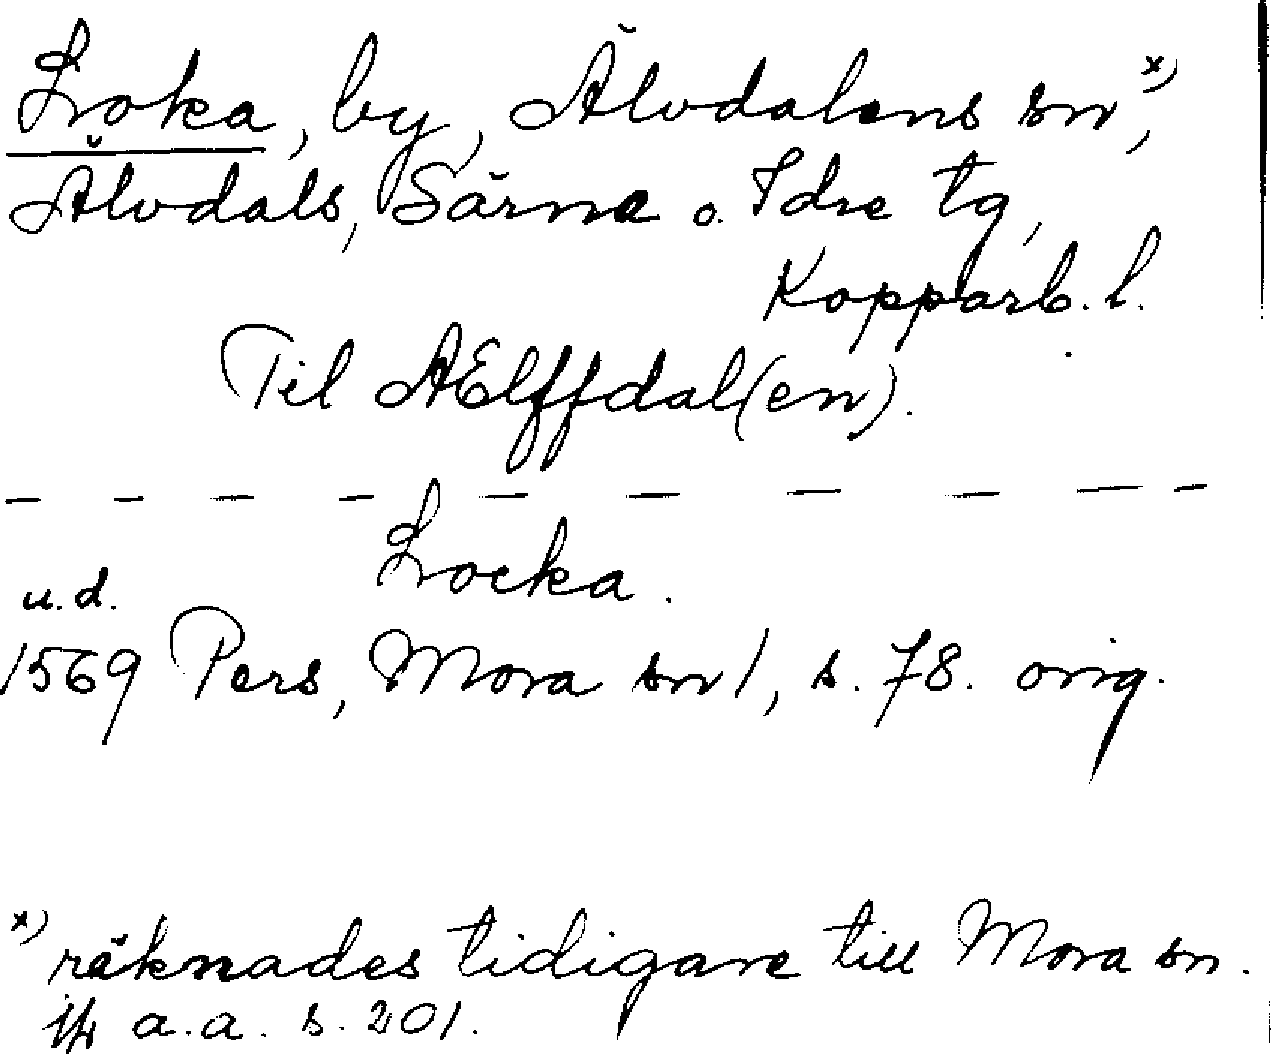 Loka, by, Älvdalens sn,x)
Älvdals, Särna o. Idre tg,
Kopparb. l.
Til AElffdal(en).
Locka.
u.d.
1569 Pers, Mora sn 1, s. 78. orig.
x) räknades tidigare till Mora sn.
jfr a.a. s. 201.